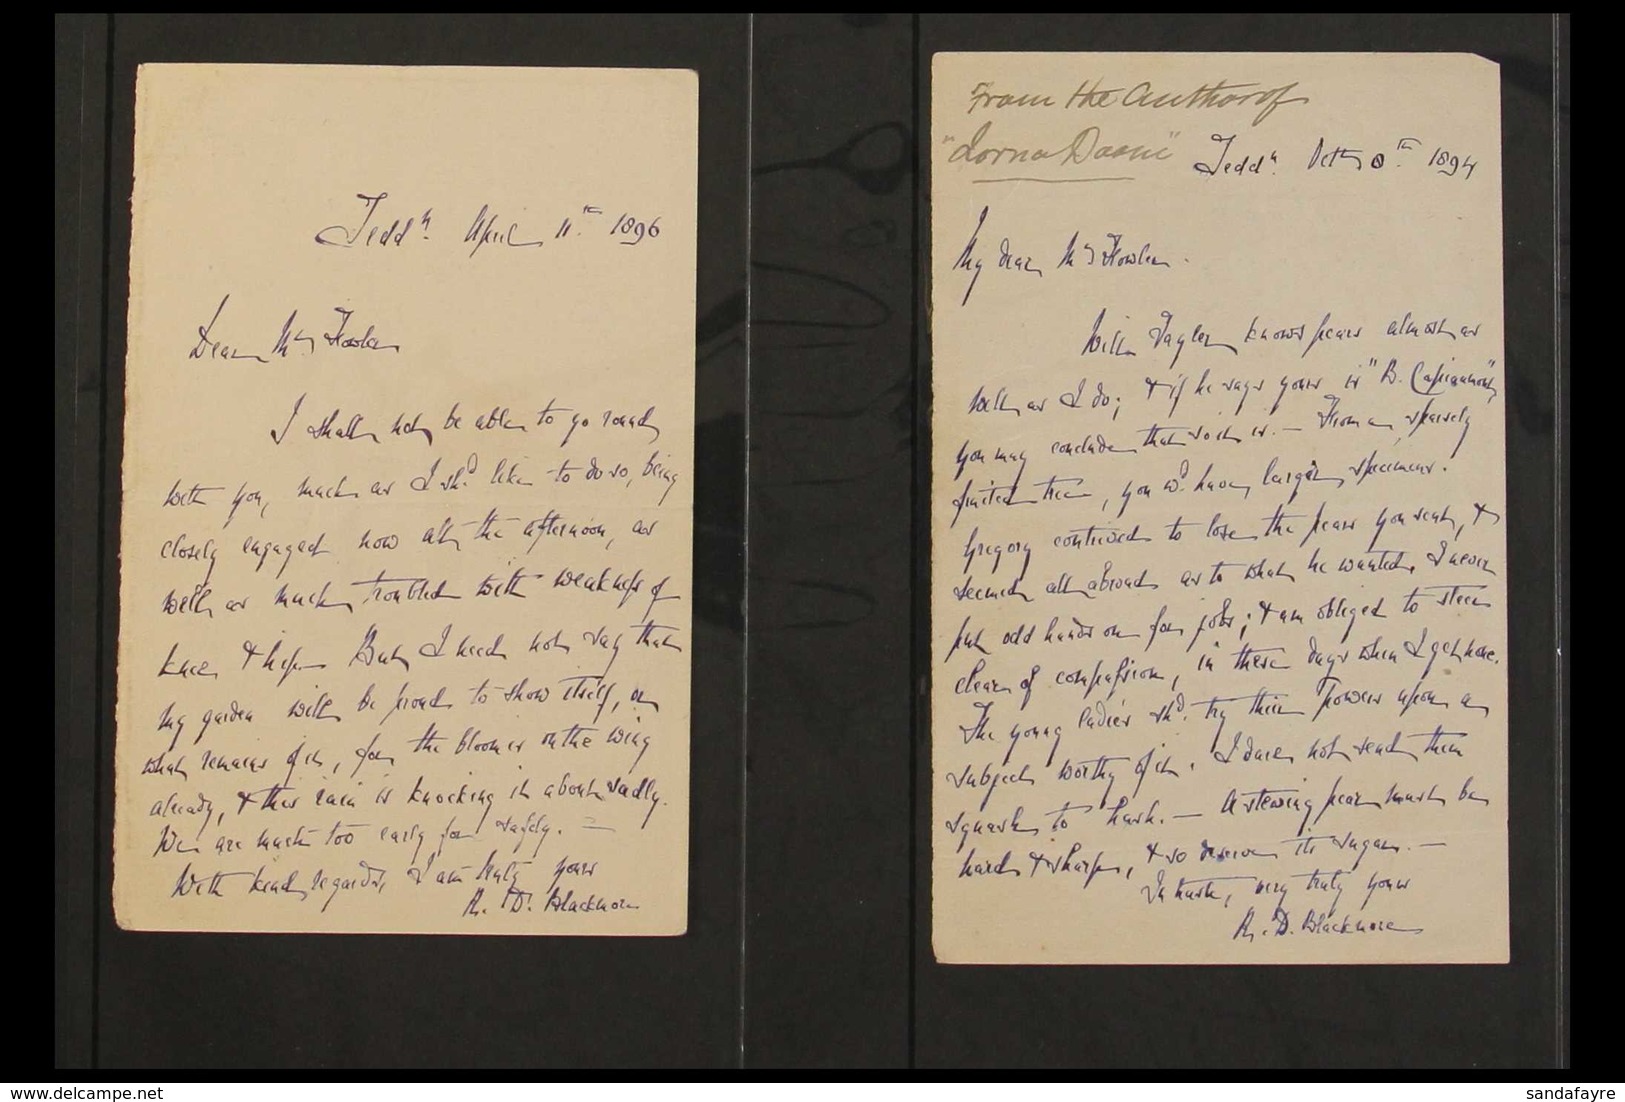 Tedd.n April 11.th 1896
Dear Mrs Fowler
I shall not be able to go round
with you, much as I sh.d like to do so, being
closely engaged now all the afternoon, as
well as much troubled with weakness of
knee & hip. But I need not say that
my garden will be proud to show itself, or
what remains of it, for the bloom is on the wing
already, & this rain is knocking it about sadly.
We are much too early for safety. —
With kind regards, I am truly yours
R. D. Blackmore
From the Author of
"Lorna Doone"
Tedd.n Oct. 8.th 1894
My dear Mrs Fowler.
Will Tayler knows pears almost as
well as I do; & if he says yours is "B. Capiaumont,"
you may conclude that so it is. — From a sparsely
fruited tree, you w.d have larger specimens.
Gregory contrived to lose the pears you sent, &
seemed all abroad as to what he wanted. I never
put odd hands on for jobs; & am obliged to steer
clear of compassion, in these days when I get none.
The young ladies sh.d try their powers upon a
subject worthy of it. I dare not send them
squash to hash. — A stewing pear must be
hard & sharp, & so deserve its sugar. —
In haste, very truly yours
R. D. Blackmore
delcampe.net
sandafayre